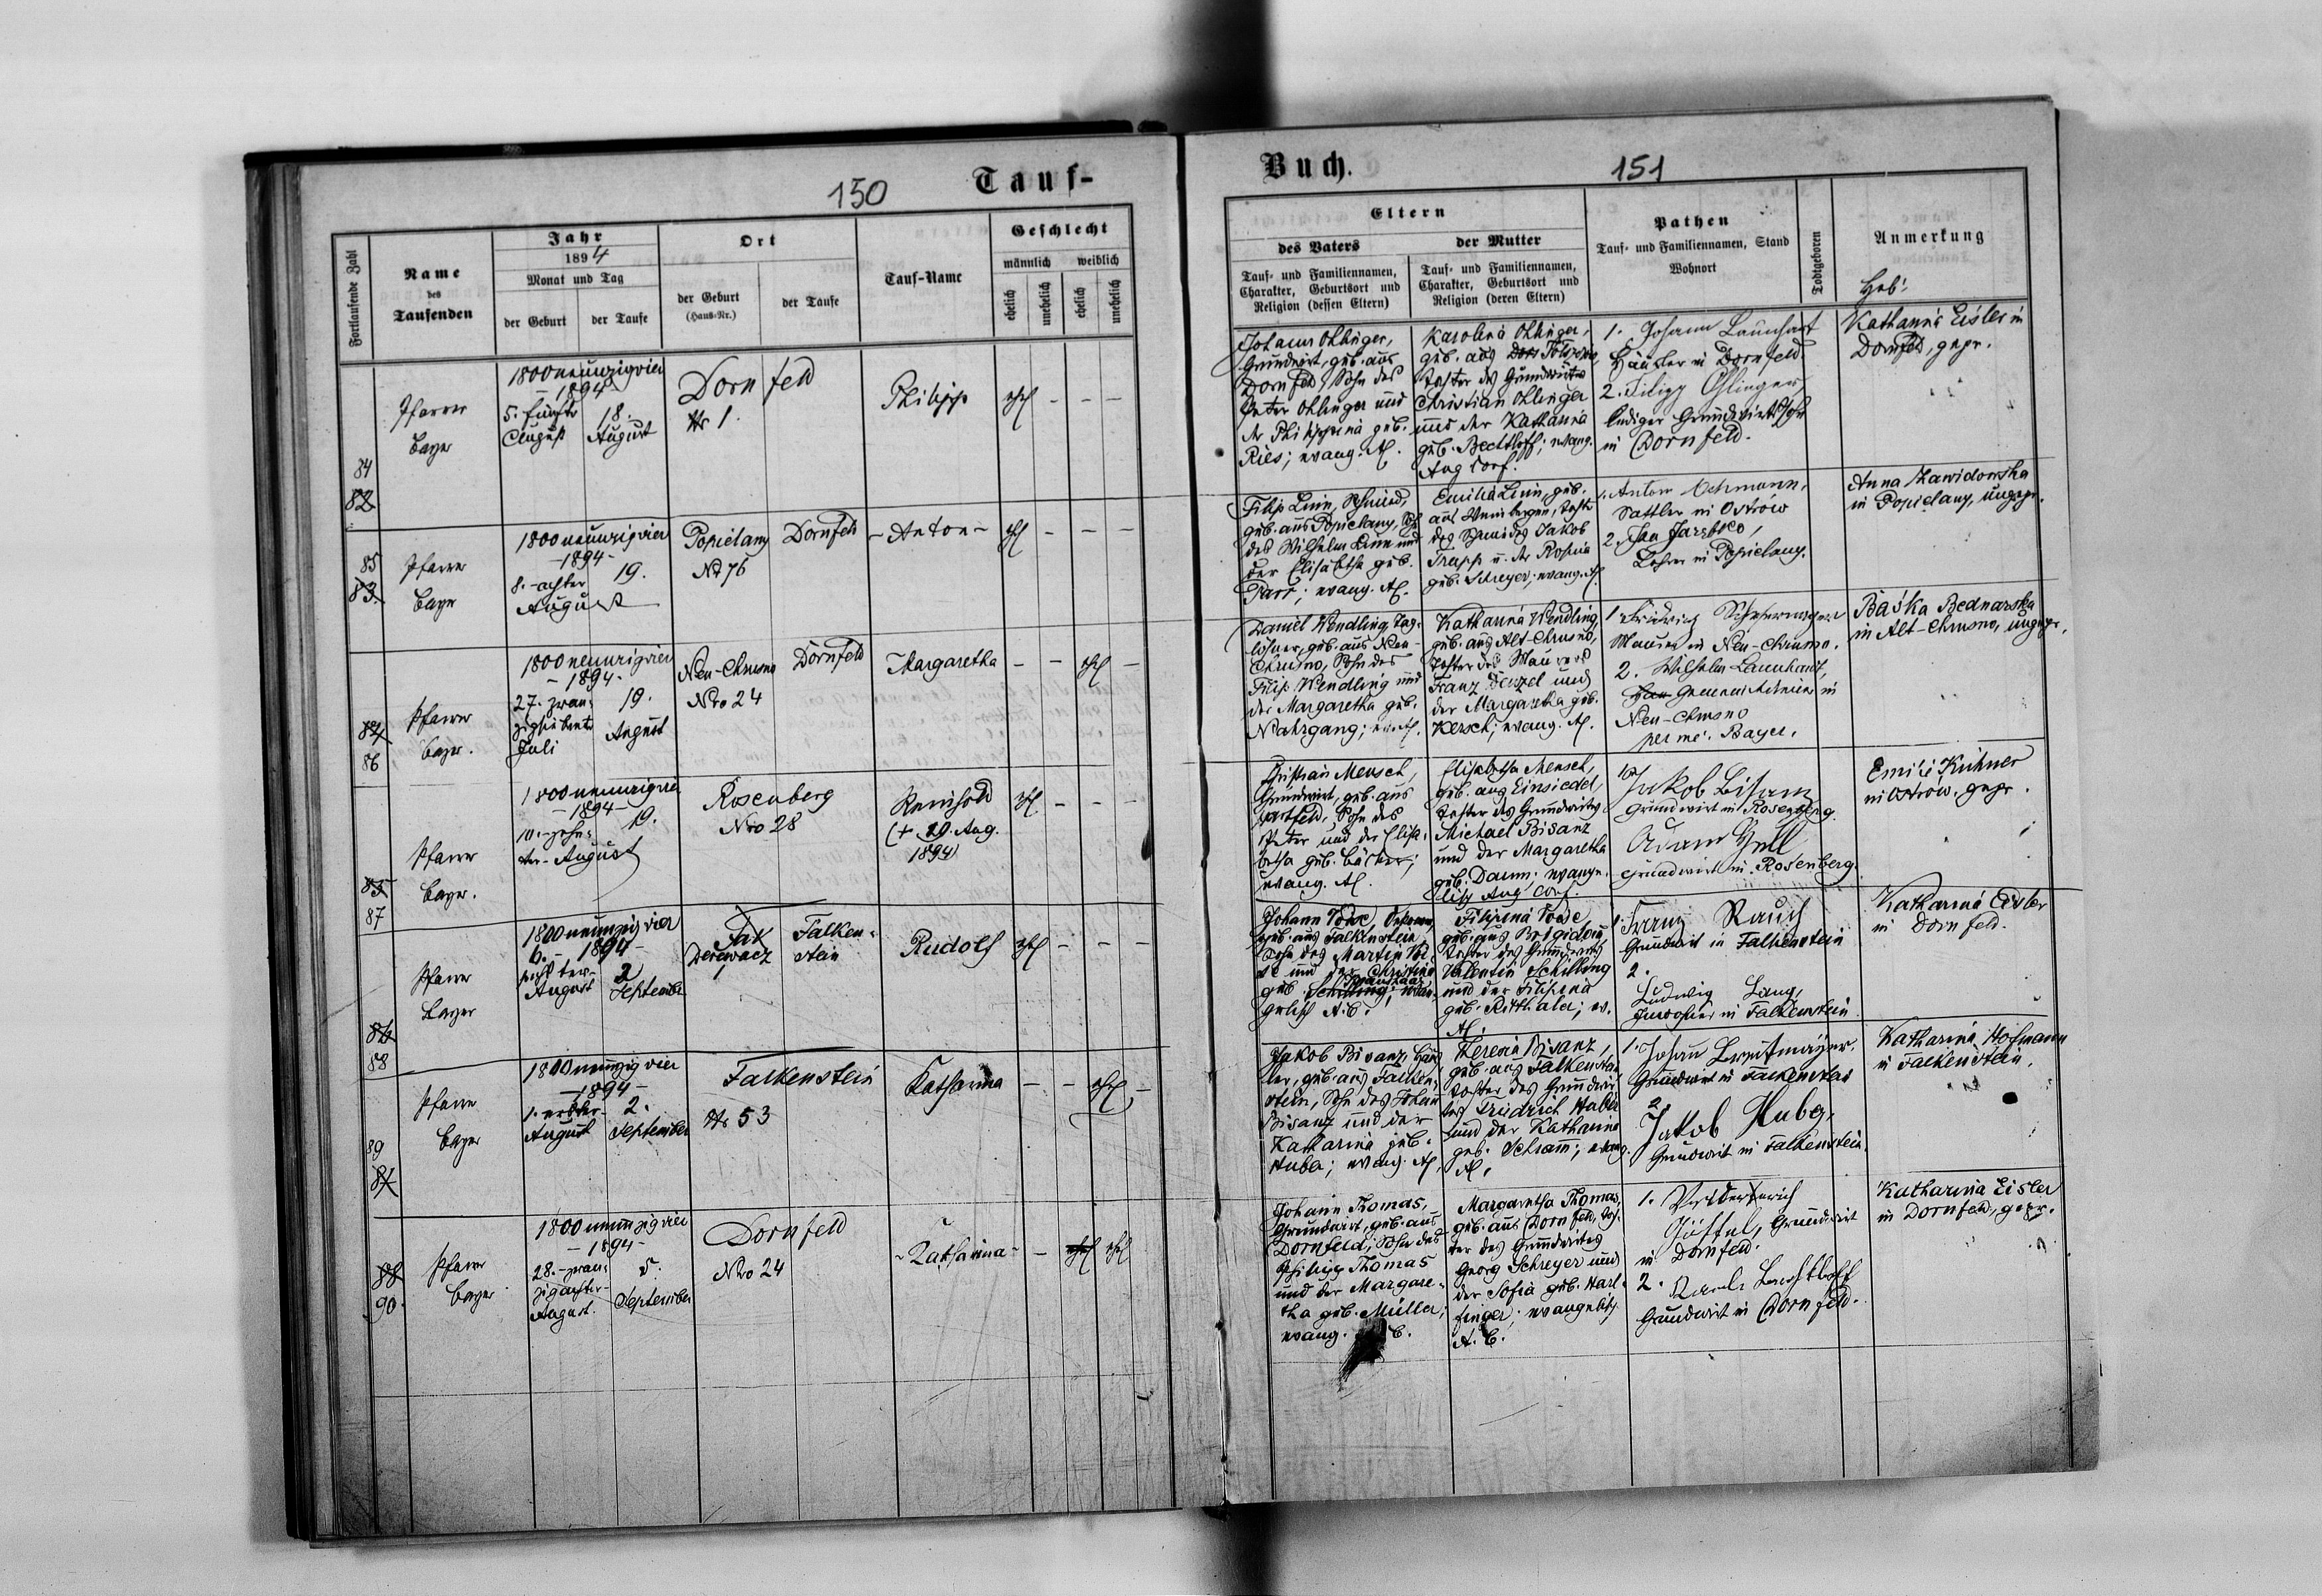 150
Tauf-
Fortlaufende Zahl
Name
des
Taufenden
Jahr
1894
Monat und Tag
der Geburt
der Taufe
Ort
der Geburt
(Haus-Nr.)
der Taufe
Tauf-Name
Geschlecht
männlich
weiblich
ehelich
unehelich
ehelich
unehelich
84
82
Pfarrer
Bayer
1800neunzigvier
- 1894 -
5. fünfter
August
18.
August
Dornfeld
Nr 1.
Philipp
ehel
- - -
85
83.
Pfarrer
Bayer
1800neunzigvier
- 1894 -
8. - achter
August
19.
Popielany
Nr 76
Dornfeld
- Anton -
ehel
- - -
84
86
Pfarrer
Bayer.
1800neunzigvier
- 1894 -
27. zwan-
zigsiebenter
Juli
19.
August
Neu-Chrusno
Nro 24
Dornfeld
Margaretha
- - ehel -
85
87
Pfarrer
Bayer.
1800neunzigvier
- 1894 -
10. - zehn-
ter - August
19.
Rosenberg
Nro 28
Reinhold
(+ 29. Aug.
1894)
ehel
- - -
86
88
Pfarrer
Bayer
1800neunzigvier
6. - 1894 -
August
2
September
Fal
Derewacz
Falken-
stein
Rudolf
ehel
- - -
89
87
Pfarrer
Bayer
1800neunzigvier
- 1894 -
1. erster -
August
2.
September
Falkenstein
Nr 53
Katharina
- - ehel -
88
90.
Pfarrer
Bayer
1800neunzigvier
- 1894 -
28. - zwan-
zigachter -
August.
5.
September
Dornfeld
Nro 24
- Katharina -
- ehel ehel -
Buch.
151
Eltern
des Vaters
Tauf- und Familiennamen,
Charakter, Geburtsort und
Religion (dessen Eltern)
der Mutter
Tauf- und Familiennamen,
Charakter, Geburtsort und
Religion (deren Eltern)
Pathen
Tauf- und Familiennamen, Stand
Wohnort
Todtgeboren
Anmerkung
Heb.
Johann Ohlinger,
Grundwirt, geb. aus
Dornfeld, Sohn des
Peter Ohlinger und
der Philippina geb.
Ries; evang. AC.
Karolina Ohlinger,
geb. aus
Tochter des Grundwirts
Christian Ohlinger
und der Katharina
geb. Bechtloff; evang.
Aug Conf.
1. Johann Launhart
Häusler in Dornfeld
2. Filipp Ohlinger
lediger Grundwirtssohn
in Dornfeld.
Katharina Eisler in
Dornfeld, gepr.
Filip Linn, Schmied,
geb. aus Popielany, Sohn
des Wilhelm Linn und
der Elisabetha geb.
Parr; evang. AC.
Emilia Linn, geb.
aus Weinbergen, Tocht
des Schmides Jakob
Trapp u. der Rosina
geb. Schreyer; evang. AC.
1. Anton Ochmann,
Sattler in Ostrów
2. Jan
Lehrer in Popielany.
Anna Zawidowska
in Popielany, ungepr.
Daniel Wendling, Tag-
löhner, geb. aus Neu-
Chrusno, Sohn des
Filip Wendling und
der Margaretha geb.
Nahrgang; ev. AC.
Katharina Wendling,
geb. aus Alt-Chrusno,
Tochter des Maurers
Franz Denzel und
der Margaretha geb.
Kersch; evang. AC.
1 Fridrich
Maurer in Neu-Chrusno.
2. Wilhelm Launhardt,
Gemeindediener in
Neu-Chrusno
per me. Bayer.
Baśka Bednarska
in Alt-Chrusno, ungepr.
Christian Mensch,
Grundwirt, geb. aus
Hartfeld, Sohn des
Peter und der Elisa-
betha geb. Bäcker;
evang. AC.
Elisabetha Mensch,
geb. aus Einsiedel,
Tochter des Grundwirtes
Michael Bisanz
und der Margaretha
geb. Daum; evange-
lisch Aug Conf.
1. Jakob Bisanz
Grundwirt in Rosenberg.
Adam
Grundwirt in Rosenberg.
Emilie Kühner
in Ostrów, gepr.
Johann
geb. aus Falkenstein,
Sohn des Martin
und der Christina
geb. Schilling; evan-
gelisch A.C.
Filipina
geb. aus Brigidau,
Tochter des Grundwirtes
Valentin Schilling
und der Filipina
geb. Ritthaler; ev.
AC.
1. Franz Rauch
Grundwirt in Falkenstein
2.
Ludwig Lang,
Inwohner in Falkenstein
Katharina Eisler
in Dornfeld.
Jakob Bisanz, Häus-
ler, geb. aus Falken-
stein, Sohn des Johann
Bisanz und der
Katharina geb.
Huber; evang. AC.
Theresia Bisanz,
geb. aus Falkenstein
Tochter des Grundwir-
tes Friedrich Huber
und der Katharina
geb. Schramm; evang.
AC.
1. Johann Breitmayer,
Grundwirt in Falkenstein
2.
Jakob Huber,
Grundwirt in Falkenstein.
Katharina Hofmann
in Falkenstein.
Johann Thomas,
Grundwirt, geb. aus
Dornfeld; Sohn des
Philipp Thomas
und der Margare-
tha geb. Müller;
evang.
Margaretha Thomas,
geb. aus Dornfeld, Toch-
ter des Grundwirtes
Georg Schreyer und
der Sofia geb. Harl-
finger; evangelisch
A. C.
1.
Grundwirt
in Dornfeld.
2. Karl Bechtloff
Grundwirt in Dornfeld.
Katharina Eisler
in Dornfeld, gepr.